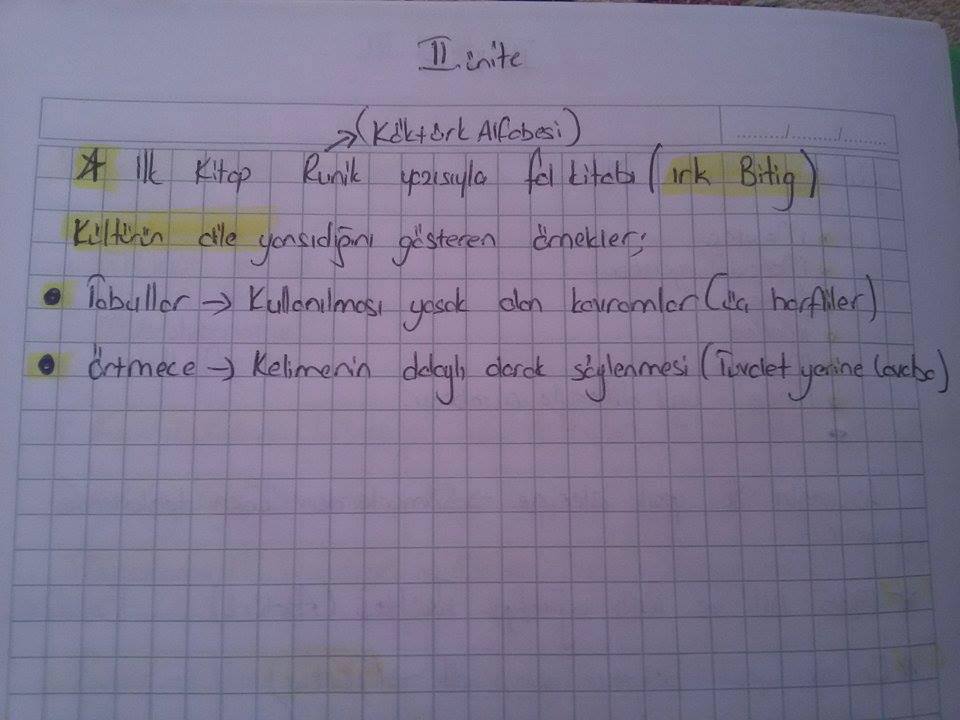 II. ünite
→(Köktürk Alfabesi)
☆ İlk Kitap Runik yazısıyla fal kitabı (ırk Bitig)
Kültürün dile yansıdığını gösteren örnekler;
• Tabullar → Kullanılması yasak olan kavramlar (üç harfliler)
• örtmece → Kelimenin dolaylı olarak söylenmesi (Tuvalet yerine lavabo)